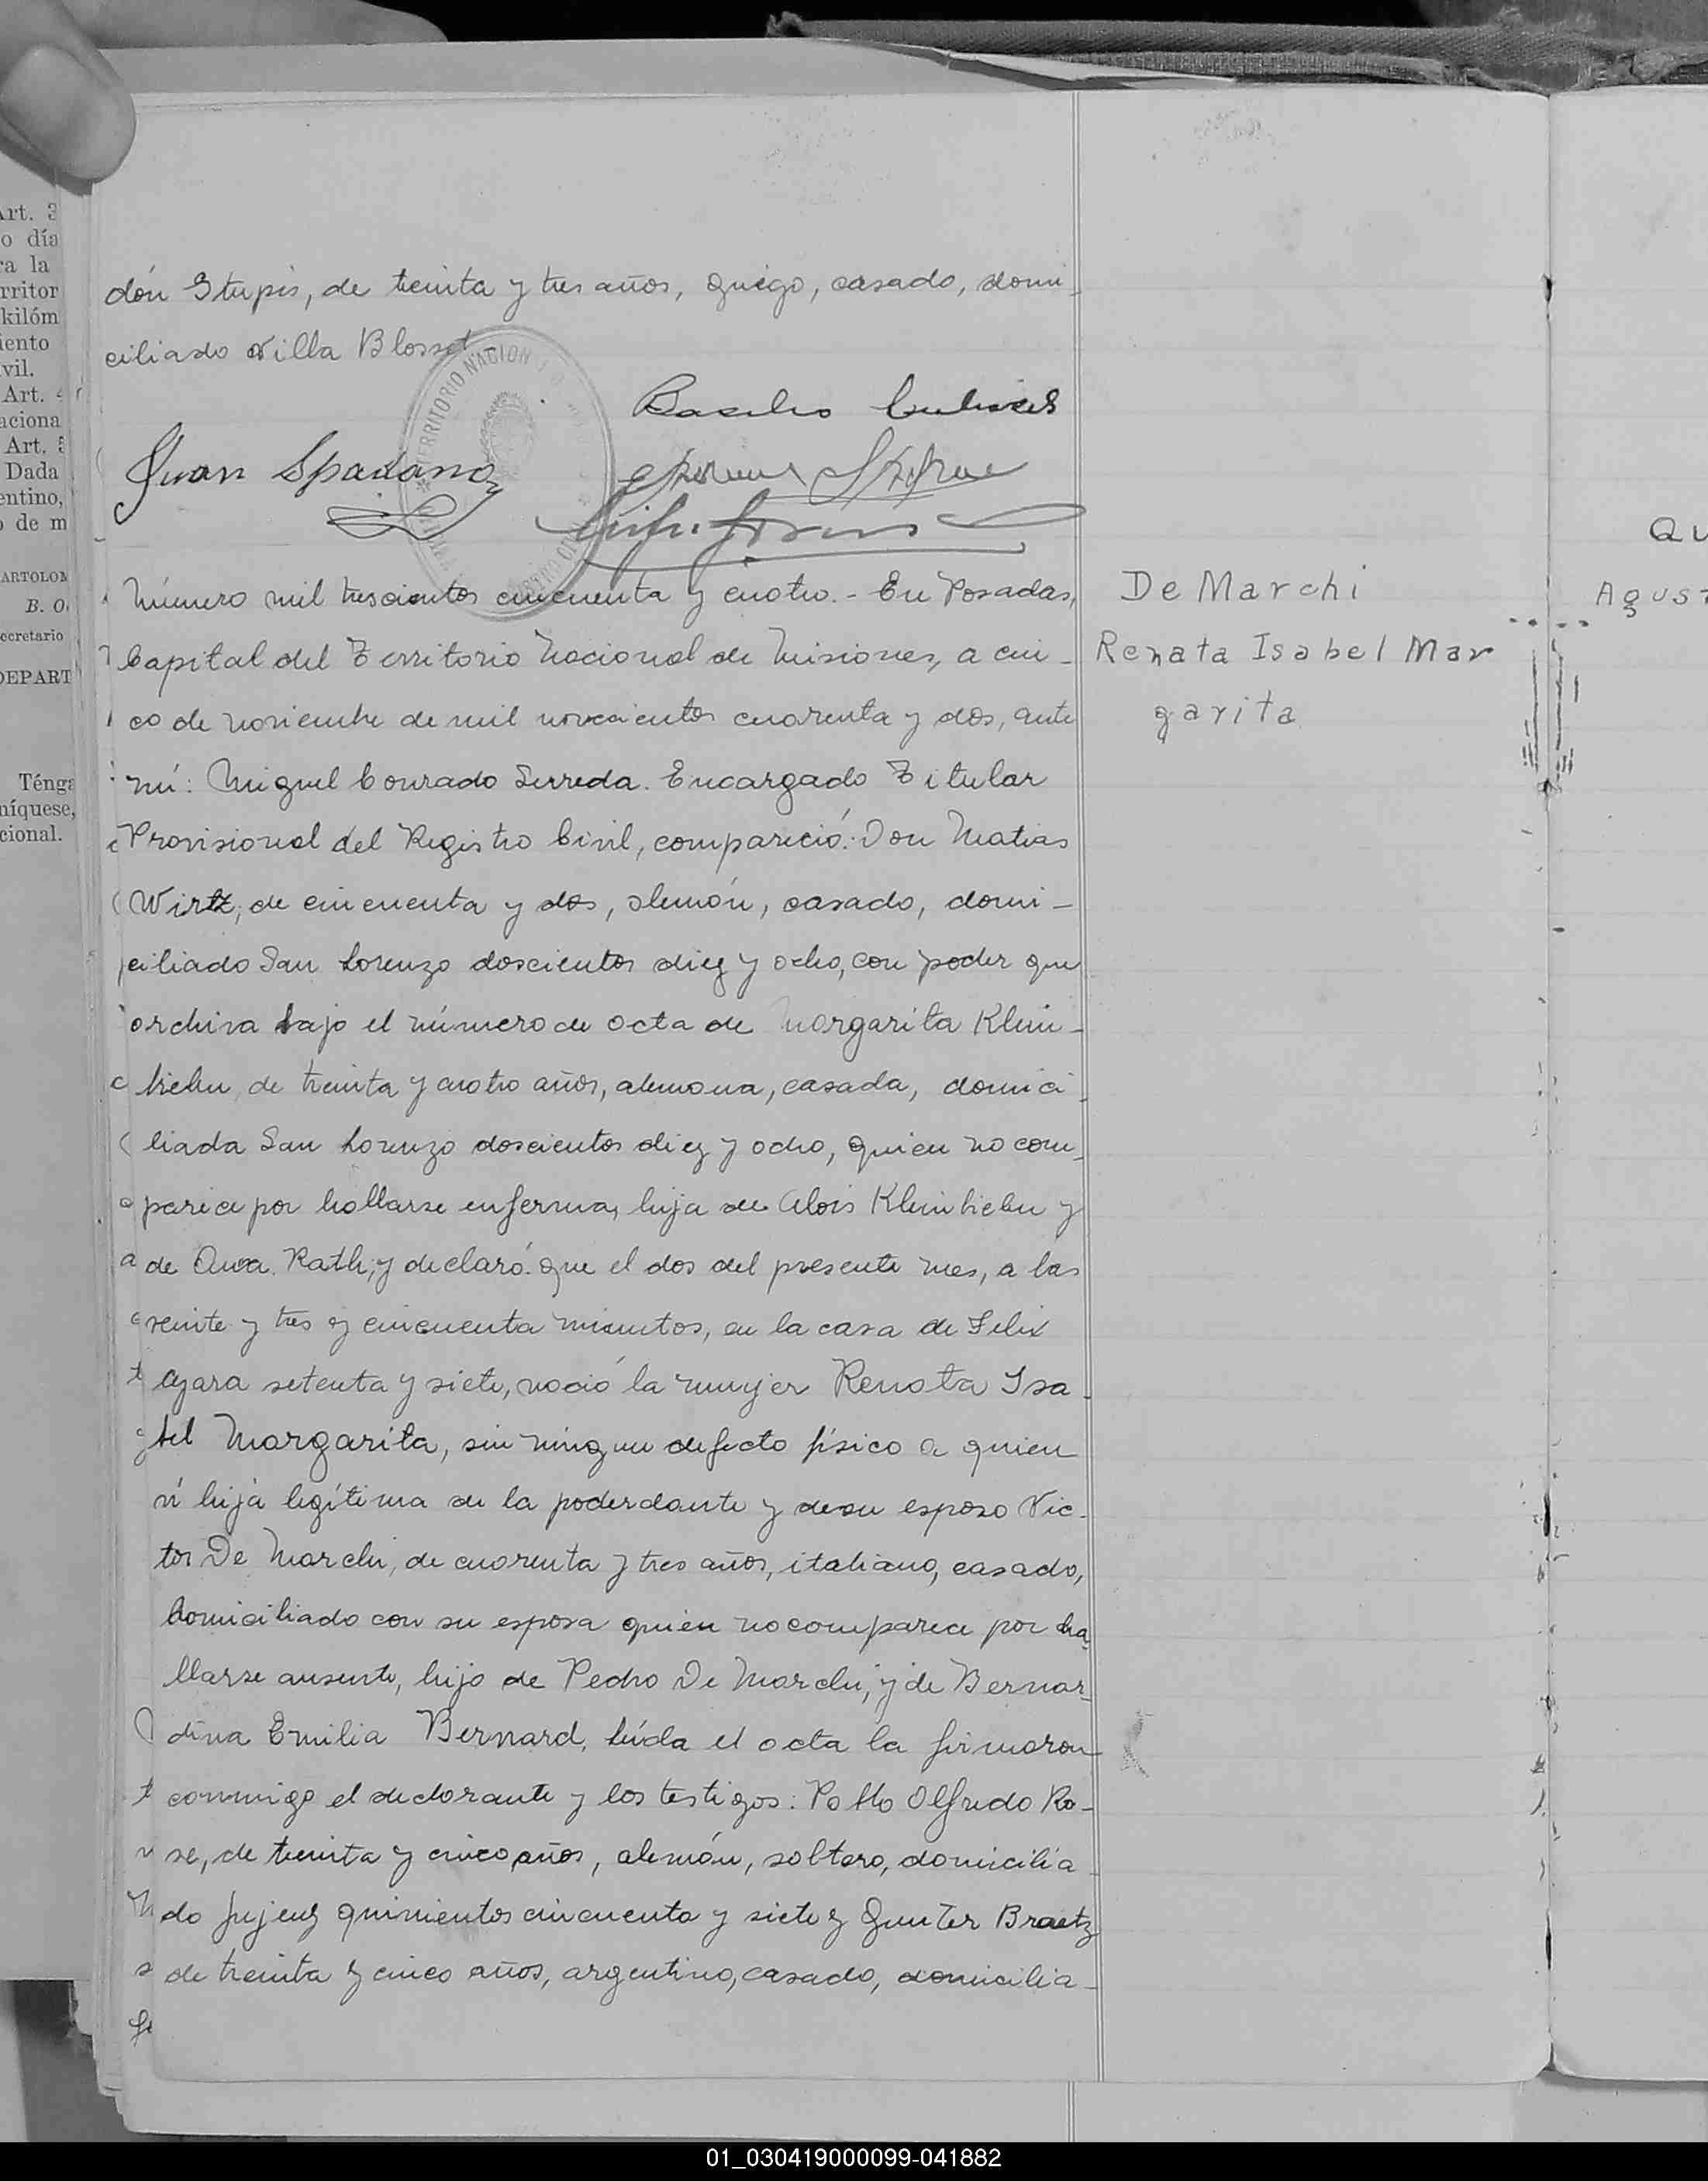 Art. 3
o día
ra la
rritor
kilóm
iento
vil.
Art. 4
aciona
Art. 5
Dada
entino,
o de m
ARTOLOM
B. O
ecretario
DEPART
Ténga
níquese,
cional.
dón Stupis, de treinta y tres años, griego, casado, domi-
ciliado Villa Blosset.-
TERRITORIO NACION
Basilio
Juan Spadano
Número mil trescientos cincuenta y cuatro.- En Posadas,
Capital del Territorio Nacional de Misiones, a cin-
co de noviembre de mil novecientos cuarenta y dos, ante
mí: Miguel Conrado Serreda. Encargado Titular
Provisional del Registro Civil, compareció: Don Matias
Wirtz, de cincuenta y dos, alemán, casado, domi-
ciliado San Lorenzo doscientos diez y ocho, con poder que
archiva bajo el número de acta de Margarita Klein-
triehn, de treinta y cuatro años, alemana, casada, domici-
liada San Lorenzo doscientos diez y ocho, quien no com-
parece por hallarse enferma, hija de Alois Kleintriehn y
de Ana Rath; y declaró: que el dos del presente mes, a las
veinte y tres y cincuenta minutos, en la casa de Felix
Azara setenta y siete, nació la mujer Renata Isa-
bel Margarita, sin ningun defecto físico a quien
ví hija legítima de la poderdante y de su esposo Vic-
tor De Marchi, de cuarenta y tres años, italiano, casado,
domiciliado con su esposa quien no comparece por ha-
llarse ausente, hijo de Pedro De Marchi, y de Bernar-
dina Emilia Bernard. Leída el acta la firmaron
conmigo el declarante y los testigos: Pablo Alfredo Ro-
se, de treinta y cinco años, alemán, soltero, domicilia-
do Jujuy quinientos cincuenta y siete y Gunter Braetz
de treinta y cinco años, argentino, casado, domicilia-
De Marchi
Renata Isabel Mar
garita
QU
Agust
01_030419000099-041882